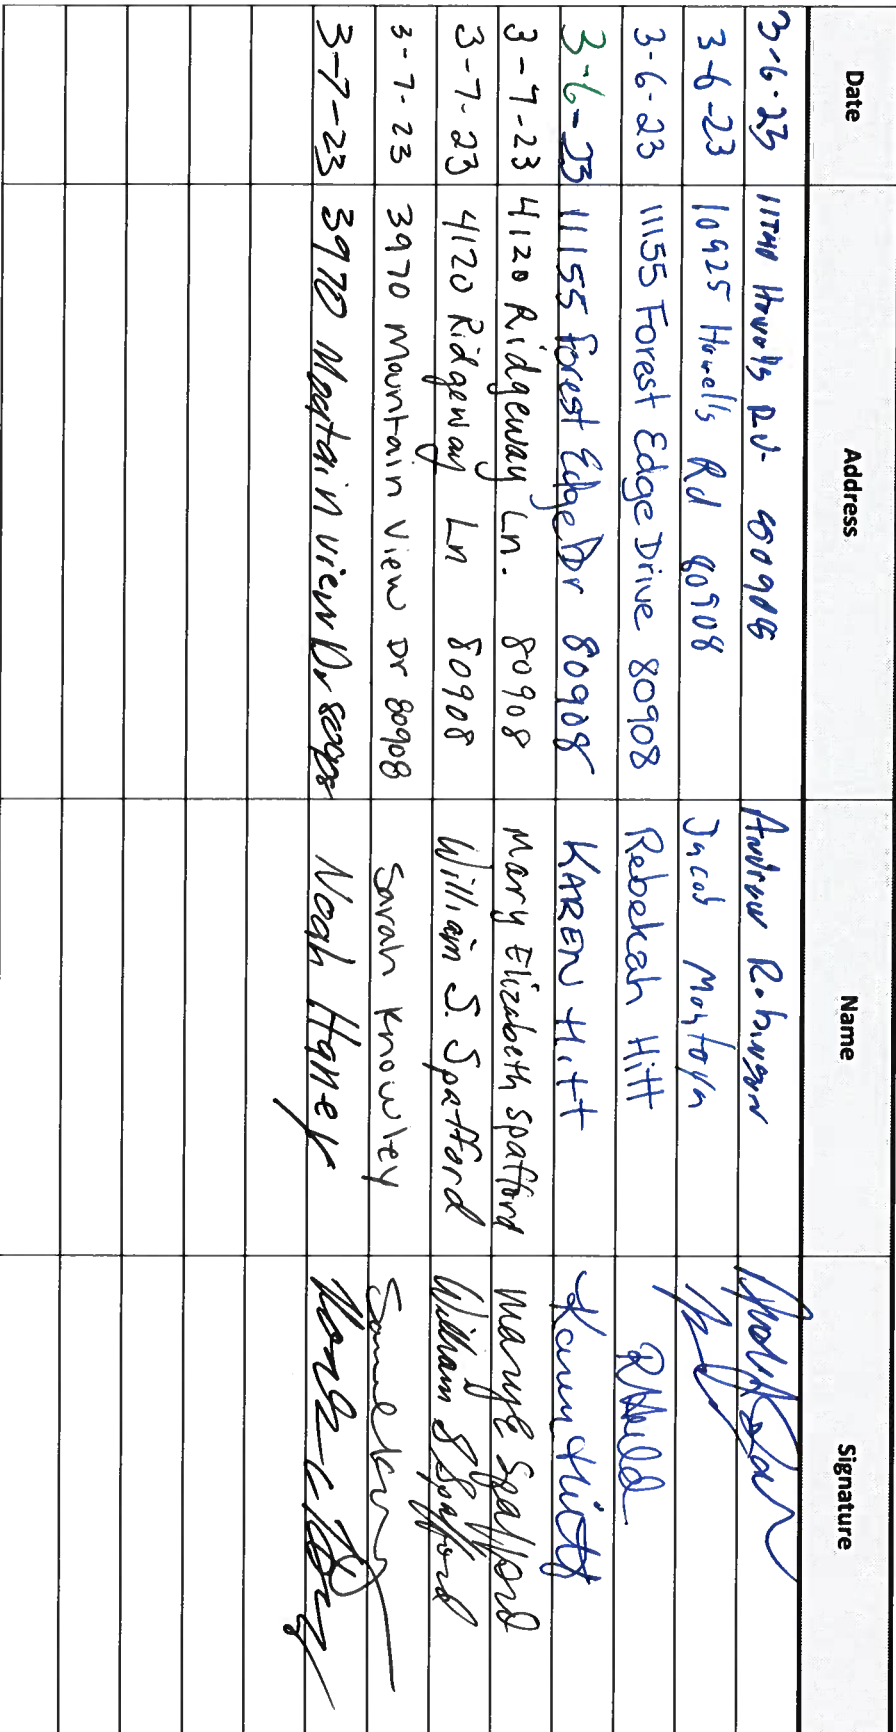 Date Address Name Signature
3-6-23 Howells Rd. 80908 Andrew Robinson
3-6-23 10925 Howells Rd 80908 Jacob Montoya
3-6-23 11155 Forest Edge Drive 80908 Rebekah Hitt
3-6-23 11155 Forest Edge Dr 80908 KAREN Hitt Karen Hitt
3-7-23 4120 Ridgeway Ln. 80908 Mary Elizabeth Spafford Mary E Spafford
3-7-23 4120 Ridgeway Ln 80908 William S. Spafford William S Spafford
3-7-23 3970 Mountain View Dr 80908 Sarah Knowley
3-7-23 3970 Mountain View Dr 80908 Noah Haney